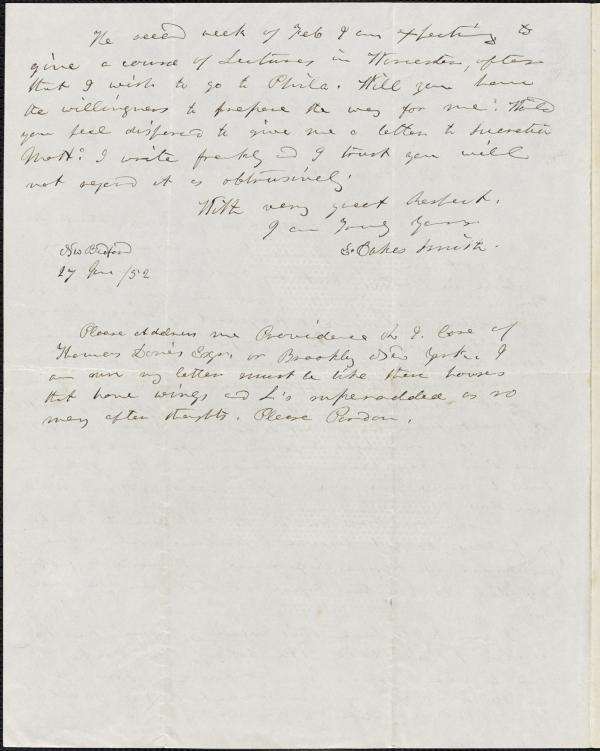 The second week of Feb I am expecting to
give a course of Lectures in Worcester, after
that I wish to go to Phila. Will you have
the willingness to prepare the way for me? Would
you feel disposed to give me a letter to Lucretia
Mott? I write frankly and I trust you will
not regard it as obtrusively.
With very great Respect.
I am Truly Yours
E. Oakes Smith.
New Bedford
27 Jan /52
Please Address me Providence R. I. Care of
Thomas Davis Esqr. or Brooklyn New York. I
am sure my letters must be like those houses
that have wings and L's superadded as so
many after thoughts. Please Pardon.